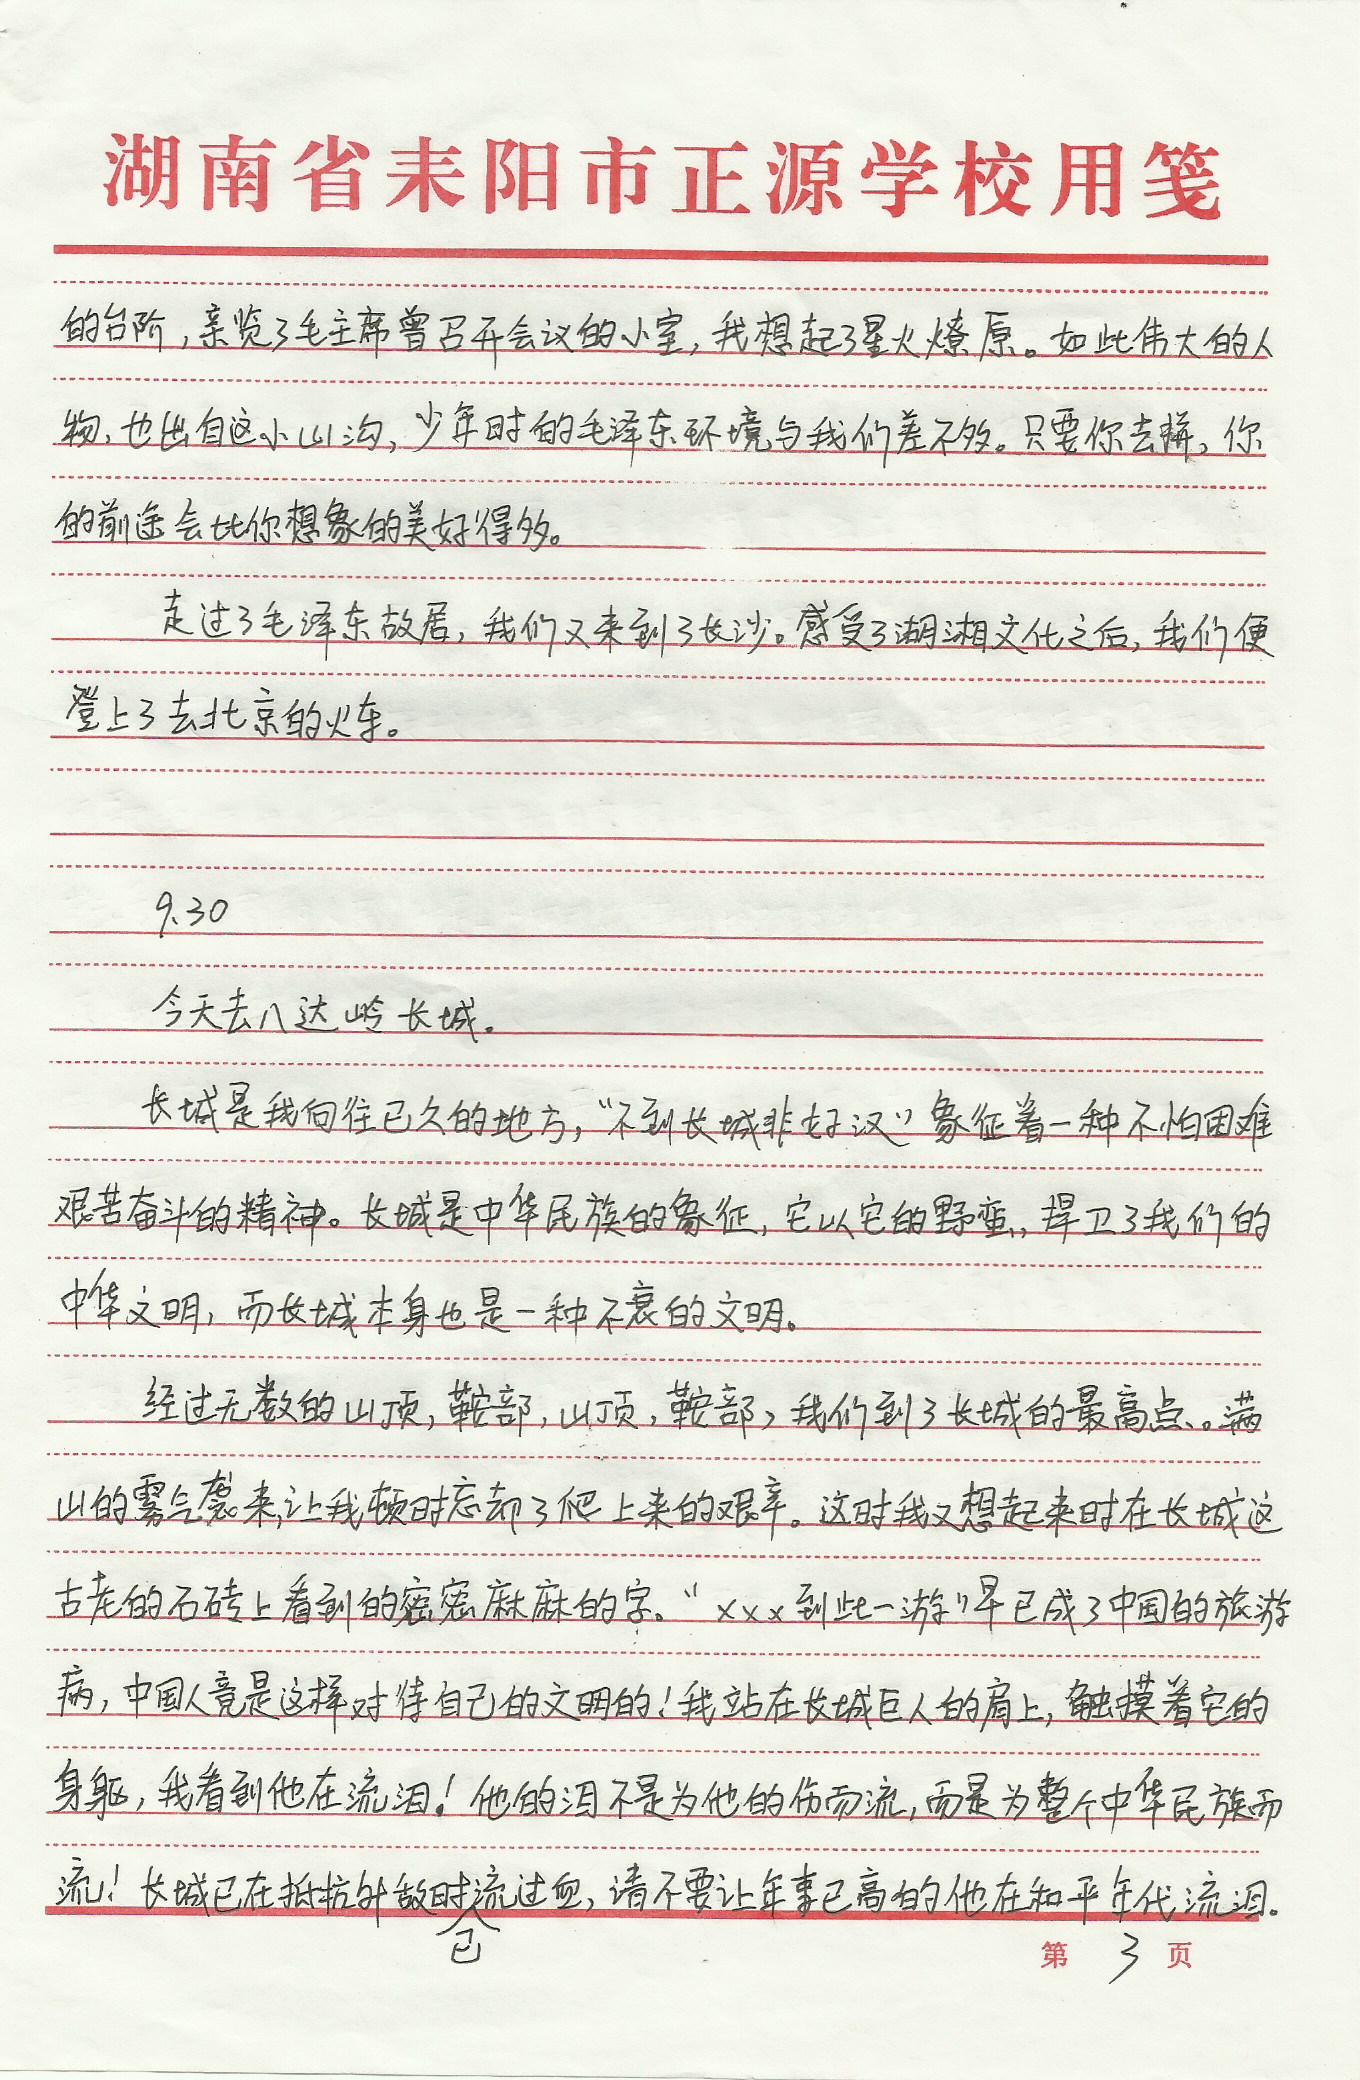 湖南省耒阳市正源学校用笺
的台阶，亲览了毛主席曾召开会议的小室，我想起了星火燎原。如此伟大的人
物，也出自这小山沟，少年时的毛泽东环境与我们差不多。只要你去拼，你
的前途会比你想象的美好得多。
走过了毛泽东故居，我们又来到了长沙。感受了湖湘文化之后，我们便
登上了去北京的火车。
9.30
今天去八达岭长城。
长城是我向往已久的地方，“不到长城非好汉”象征着一种不怕困难
艰苦奋斗的精神。长城是中华民族的象征，它以它的野蛮，捍卫了我们的
中华文明，而长城本身也是一种不衰的文明。
经过无数的山顶，鞍部，山顶，鞍部，我们到了长城的最高点。满
山的雾气袭来，让我顿时忘却了爬上来的艰辛。这时我又想起来时在长城这
古老的石砖上看到的密密麻麻的字。“×××到此一游”早已成了中国的旅游
病，中国人竟是这样对待自己的文明的！我站在长城巨人的肩上，触摸着它的
身躯，我看到他在流泪！他的泪不是为他的伤而流，而是为整个中华民族而
流！长城已在抵抗外敌时流过血，请不要让年事已高的他在和平年代流泪。
已
第 3 页